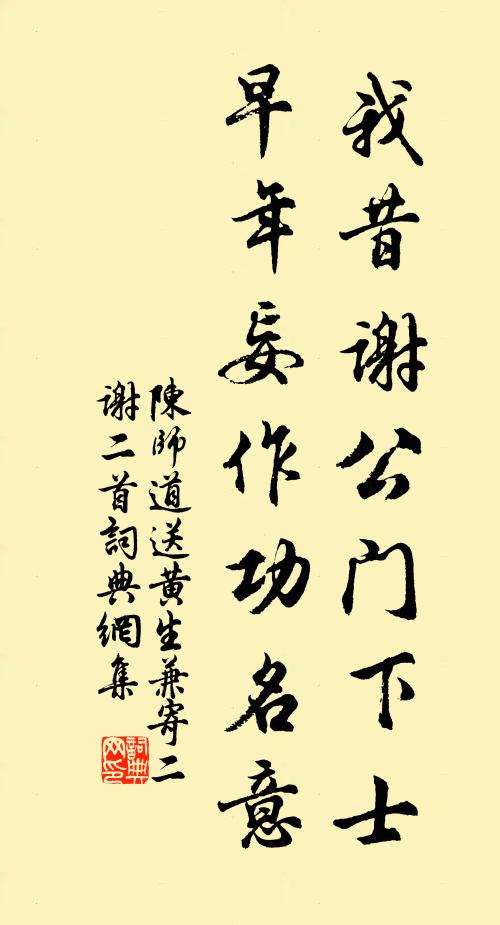 我昔谢公门下士
早年妄作功名意
陳師道送黄生兼寄二
谢二首詞典網集
詞典網印